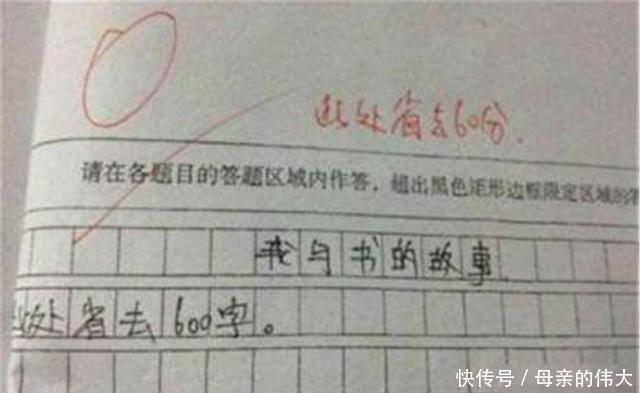 此处省去60分.
请在各题目的答题区域内作答，超出黑色矩形边框限定区域的
我与书的故事
此处省去600字。
快传号/母亲的伟大